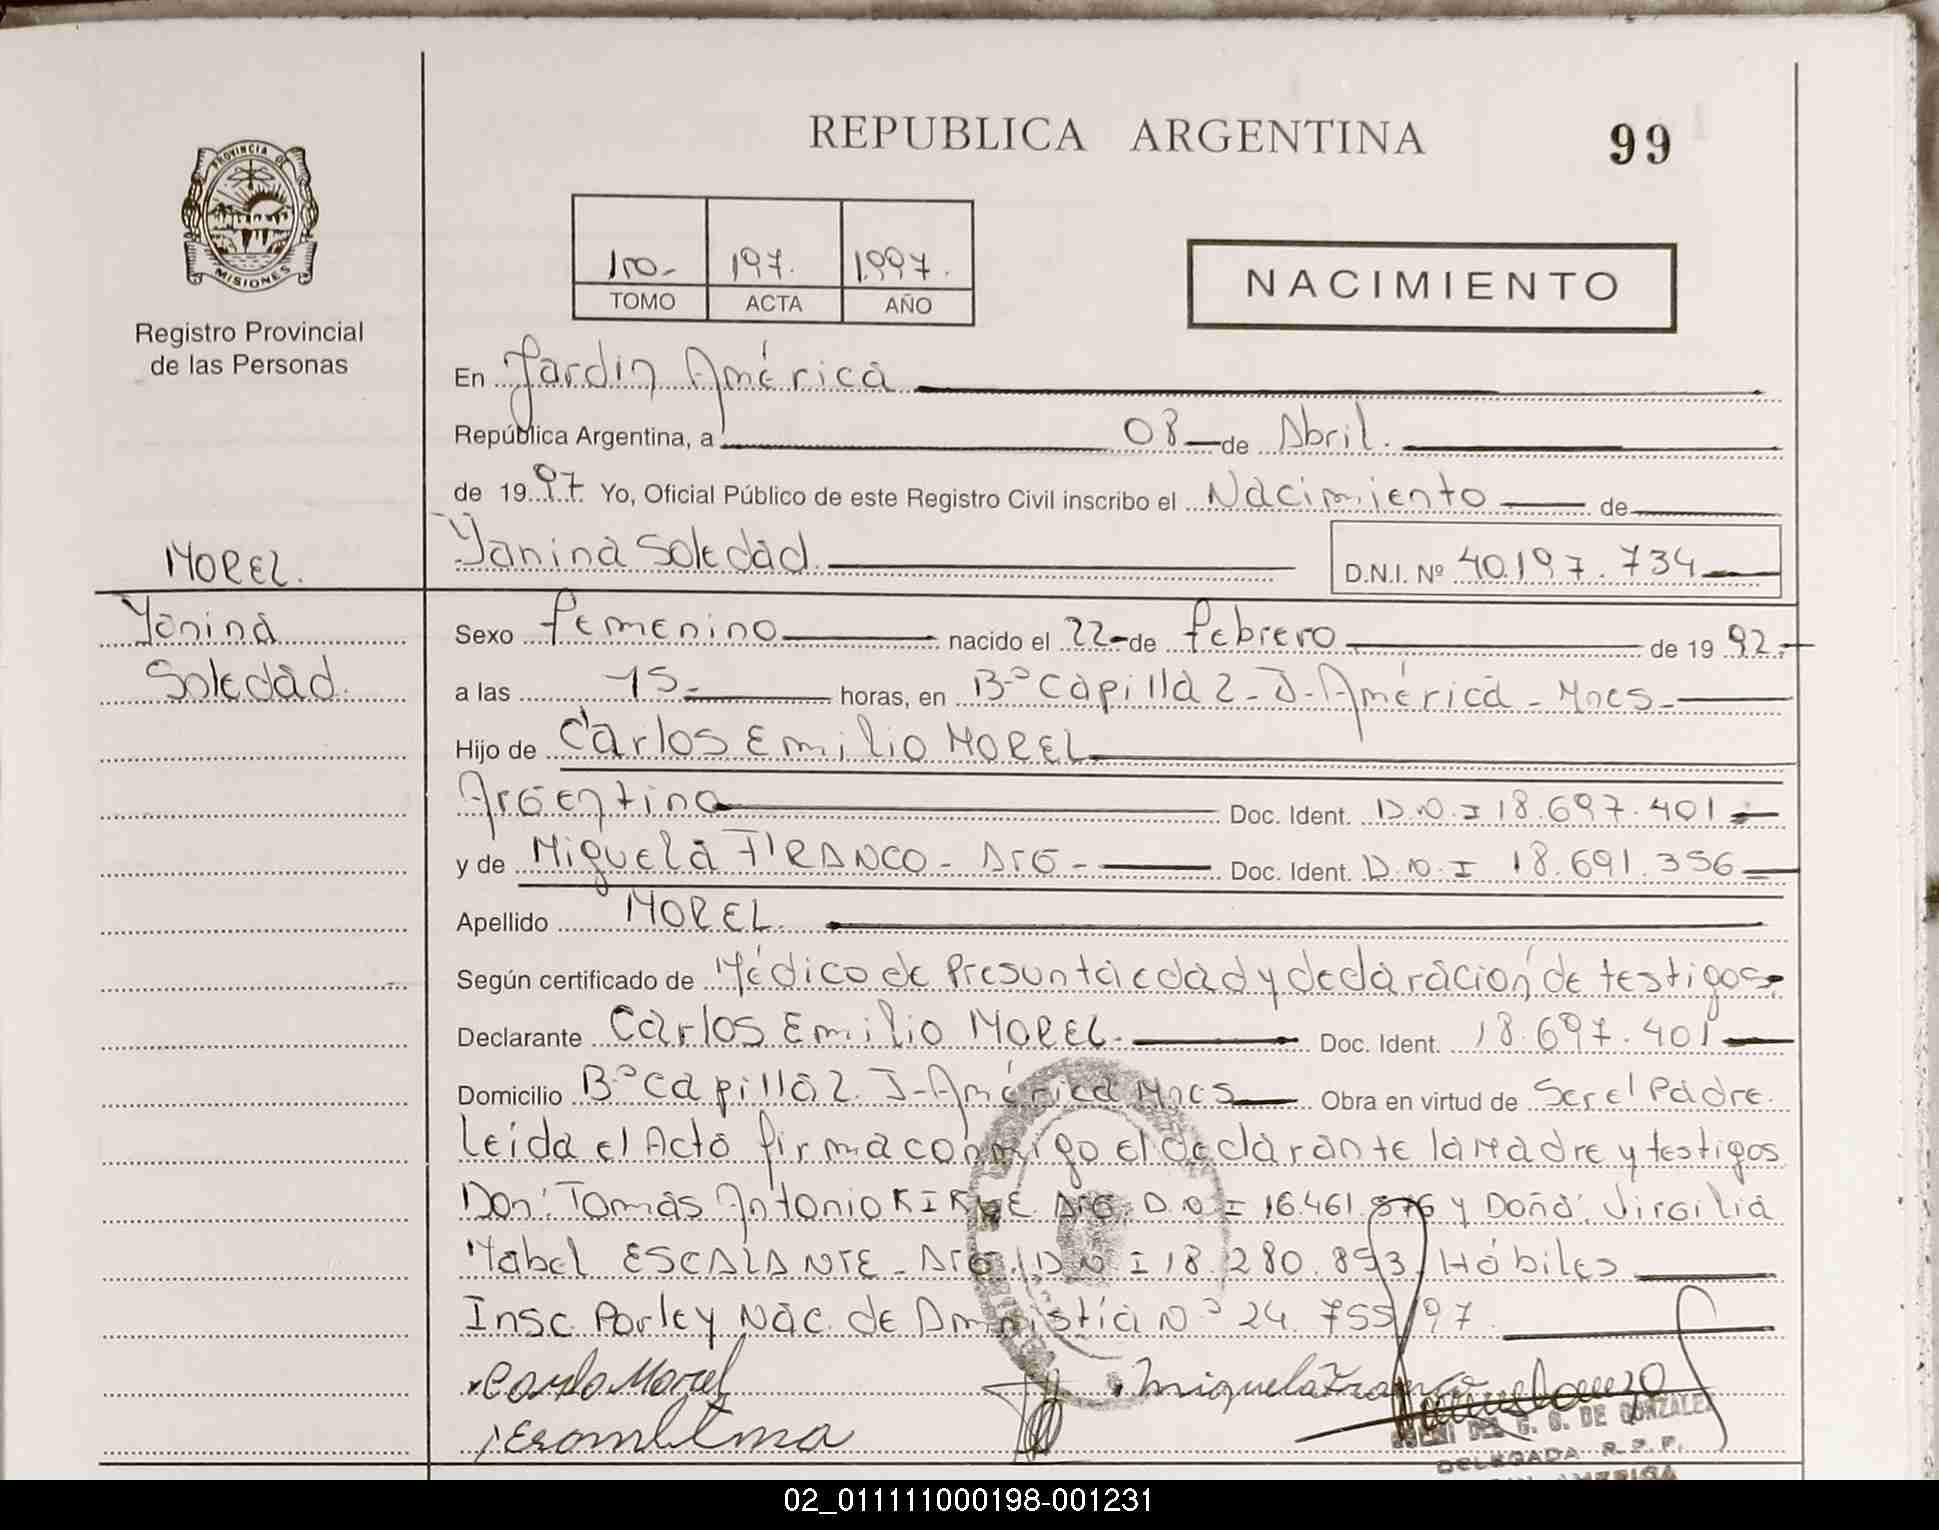 REPUBLICA ARGENTINA
99
PROVINCIA DE
MISIONES
Registro Provincial
de las Personas
1ro.- 197. 1.997.
TOMO ACTA AÑO
NACIMIENTO
En Jardin América
República Argentina, a 08 de Abril.
de 1997. Yo, Oficial Público de este Registro Civil inscribo el Nacimiento de
MOREL.
Yanina Soledad D.N.I. Nº 40.197.734
Yanina
Soledad.
Sexo femenino nacido el 22 de febrero de 1992.
a las 15 horas, en B.º Capilla 2 - J. América - Mnes -
Hijo de Carlos Emilio MOREL
Argentino Doc. Ident. D.N.I 18.697.401
y de Miguela FRANCO - Arg - Doc. Ident. D.N.I 18.691.356
Apellido MOREL
Según certificado de Médico de Presunta edad y declaración de testigos
Declarante Carlos Emilio MOREL. Doc. Ident. 18.697.401
Domicilio B.º Capilla 2. J. América Mnes Obra en virtud de Ser el Padre.
Leida el Acta firma conmigo el declarante la Madre y testigos
Don: Tomas Antonio Arg. D.N.I 16.461.876 y Doña: Virgilia
Mabel ESCALANTE - Arg. D.N.I 18.280.893, Hábiles
Insc. Por ley Nac. de Amnistía Nº 24.755/97.
Carlo Morel Miguela Franco
G. DE GONZALEZ
DELEGADA R.P.P.
AMERICA
02_011111000198-001231